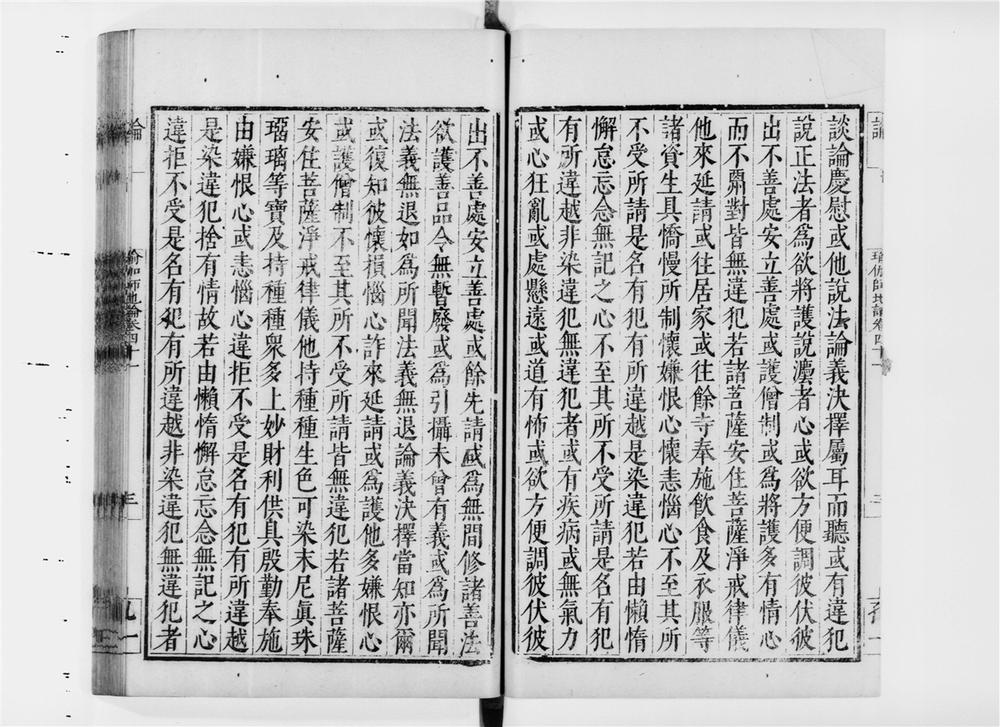 談論慶慰或他說法論義決擇屬耳而聽或有違犯
說正法者爲欲將護說灋者心或欲方便調彼伏彼
出不善處安立善處或護僧制或爲將護多有情心
而不酬對皆無違犯若諸菩薩安住菩薩淨戒律儀
他來延請或往居家或往餘寺奉施飲食及衣服等
諸資生具憍慢所制懷嫌恨心懷恚惱心不至其所
不受所請是名有犯有所違越是染違犯若由懶惰
懈怠忘念無記之心不至其所不受所請是名有犯
有所違越非染違犯無違犯者或有疾病或無氣力
或心狂亂或處懸遠或道有怖或欲方便調彼伏彼
出不善處安立善處或餘先請或爲無間修諸善法
欲護善品令無暫廢或爲引攝未曾有義或爲所聞
法義無退如爲所聞法義無退論義決擇當知亦爾
或復知彼懷損惱心詐來延請或爲護他多嫌恨心
或護僧制不至其所不受所請皆無違犯若諸菩薩
安住菩薩淨戒律儀他持種種生色可染末尼真珠
瑠璃等寶及持種種衆多上妙財利供具殷勤奉施
由嫌恨心或恚惱心違拒不受是名有犯有所違越
是染違犯捨有情故若由懶惰懈怠忘念無記之心
違拒不受是名有犯有所違越非染違犯無違犯者
論
瑜伽師地論卷四十一
三